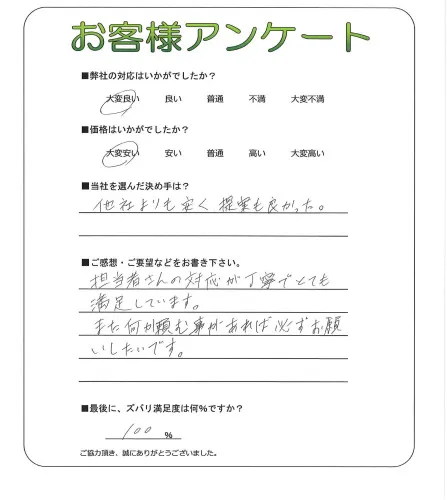 お客様アンケート
■弊社の対応はいかがでしたか？
大変良い 良い 普通 不満 大変不満
■価格はいかがでしたか？
大変安い 安い 普通 高い 大変高い
■当社を選んだ決め手は？
他社よりも安く 提案も良かった。
■ご感想・ご要望などをお書き下さい。
担当者さんの対応が丁寧でとても
満足しています。
また何か頼む事があれば必ずお願
いしたいです。
■最後に、ズバリ満足度は何%ですか？
100 %
ご協力頂き、誠にありがとうございました。